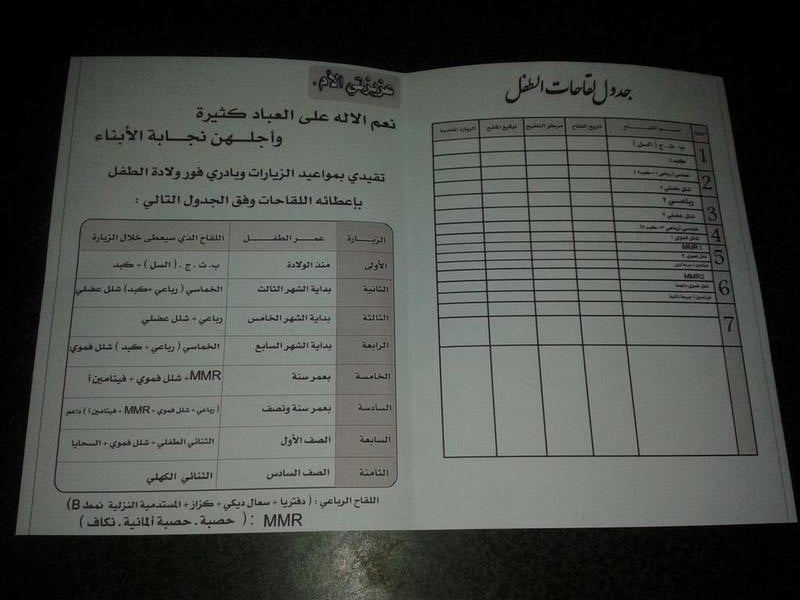 جدول لقاحات الطفل
اسم اللقاح | تاريخ اللقاح | مركز التلقيح | توقيع الملقح | الزيارة القادمة
1 | ب . ت . ج ( السل )
كبد١
2 | خماسي ( رباعي ١ + كبد٢ )
شلل عضلي ١
3 | رباعي ٢
شلل عضلي ٢
4 | خماسي ( رباعي ٣ + كبد ٣ )
شلل فموي ١
5 | MMR1
شلل فموي ٢
فيتامين أ جرعة أولى
6 | MMR2
شلل فموي داعمة
فيتامين أ جرعة ثانية
7
عزيزتي الأم .
نعم الاله على العباد كثيرة
وأجلـهـن نجـابـة الأبناء
تقيدي بمواعيد الزيارات وبادري فور ولادة الطفل
بإعطائه اللقاحات وفق الجدول التالي :
الزيارة | عمـر الطفـل | اللقاح الذي سيعطى خلال الزيارة
الأولى | منذ الولادة | ب . ت . ج . ( السل ) + كبد
الثانية | بداية الشهر الثالث | الخماسي ( رباعي +كبد) شلل عضلي
الثالثة | بداية الشهر الخامس | رباعي + شلل عضلي
الرابعة | بداية الشهر السابع | الخماسي ( رباعي + كبد ) شلل فموي
الخامسة | بعمر سنة | MMR+ شلل فموي + فيتامين أ
السادسة | بعمر سنة ونصف | ( رباعي + شلل فموي + MMR + فيتامين أ ) داعم
السابعة | الصف الأول | الثنائي الطفلي + شلل فموي + السحايا
الثامنة | الصف السادس | الثنائي الكهلي
اللقاح الرباعي : ( دفتريا + سعال ديكي + كزاز + المستدمية النزلية نمط B)
MMR : ( حصبة . حصبة ألمانية . نكاف )